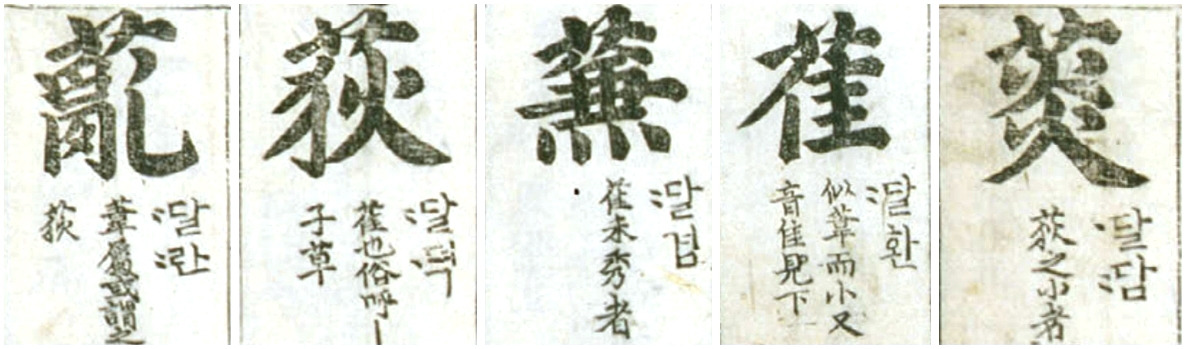 薍
:달:란
葦屬或謂之
荻
荻
:달·뎍
萑也俗呼丨
子草
蒹
:달겸
萑未秀者
萑
:달환
似葦而小又
音隹見下
菼
:달:담
荻之小者